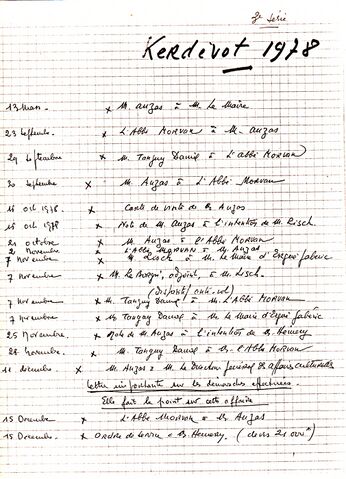 2e Série
Kerdévot 1978
13 Mars. x M. Auzas à M. le Maire
23 Septembre. x L'Abbé MORVAN à M. Auzas
29 Septembre x M. Tanguy Daniel à L'abbé MORVAN
30 Septembre x M. Auzas à L'Abbé MORVAN
15 oct 1978 x Carte de visite de M. Auzas
15 oct 1978 x Note de M. Auzas à l'intention de M. Lisch.
octobre x M. Auzas à l'Abbé MORVAN
2 Novembre x L'Abbé MORVAN à M. Auzas
7 Novembre x M. Lisch à M. le Maire d'Ergué-Gabéric
7 Novembre x M. Le adjoint, à M. Lisch.
(Dispositif anti-vol)
7 Novembre x M. Tanguy Daniel à M. L'Abbé MORVAN
7 Novembre. x M. Tanguy Daniel à M. le Maire d'Ergué Gabéric
25 Novembre. x Note de M. Auzas à l'intention de M. Hemery
Novembre. x M. Tanguy Daniel à M. l'Abbé MORVAN
11 décembre x M. Auzas à M. le Directeur général affaires culturelles
Lettre importante sur les démarches effectuées.
Elle fait le point sur cette affaire
15 Décembre x L'Abbé MORVAN à M. Auzas
15 Décembre. x Ordre de service à M. Hemery. (devis